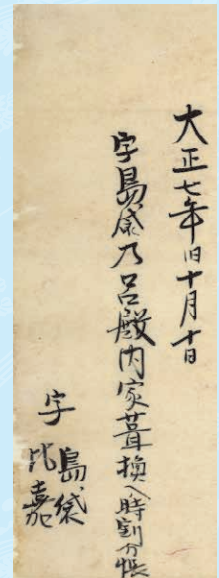 大正七年旧十月十日
字島袋乃呂殿内家葺換入時割方帳
字島袋
比嘉